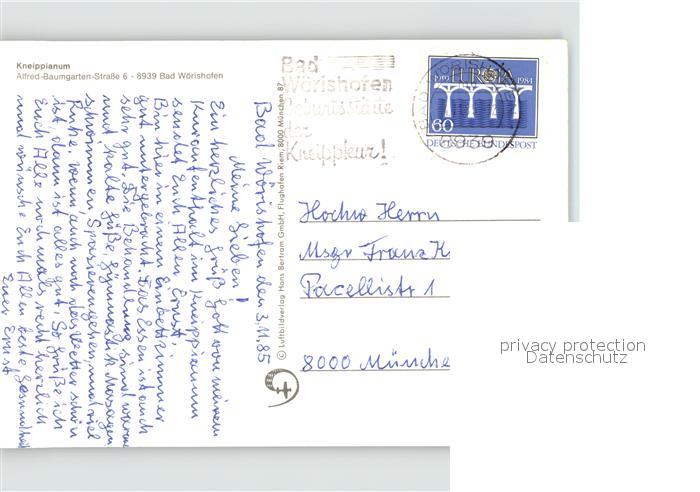 Kneippianum
Alfred-Baumgarten-Straße 6 - 8939 Bad Wörishofen
Bad
Wörishofen
Geburtsstätte
der
Kneippkur!
1959 EUROPA 1984
60
DEUTSCHE BUNDESPOST
© Luftbildverlag Hans Bertram GmbH, Flughafen Riem, 8000 München 87
Bad Wörishofen den 3.11.85
Meine Lieben!
Ein herzliches Grüß Gott von meinem
Kuraufenthalt im Kneippianum
sendet Euch Allen, Ernst.
Bin hier in einem Einbettzimmer
gut untergebracht. Das Essen ist auch
sehr gut. Die Behandlung sind warme
und kalte Güße, Gymnastik Massagen
schwimmen, Spazierengehen, und viel
Ruhe wenn auch noch das Wetter schön
ist, dann ist alles gut. So grüße ich
Euch Alle nochmals recht herzlich
und wünsche Euch Allen beste Gesundheit
Euer Ernst
Hochw Herrn
Msgr Franz K
Pacellistr 1
8000 Münche
privacy protection
Datenschutz